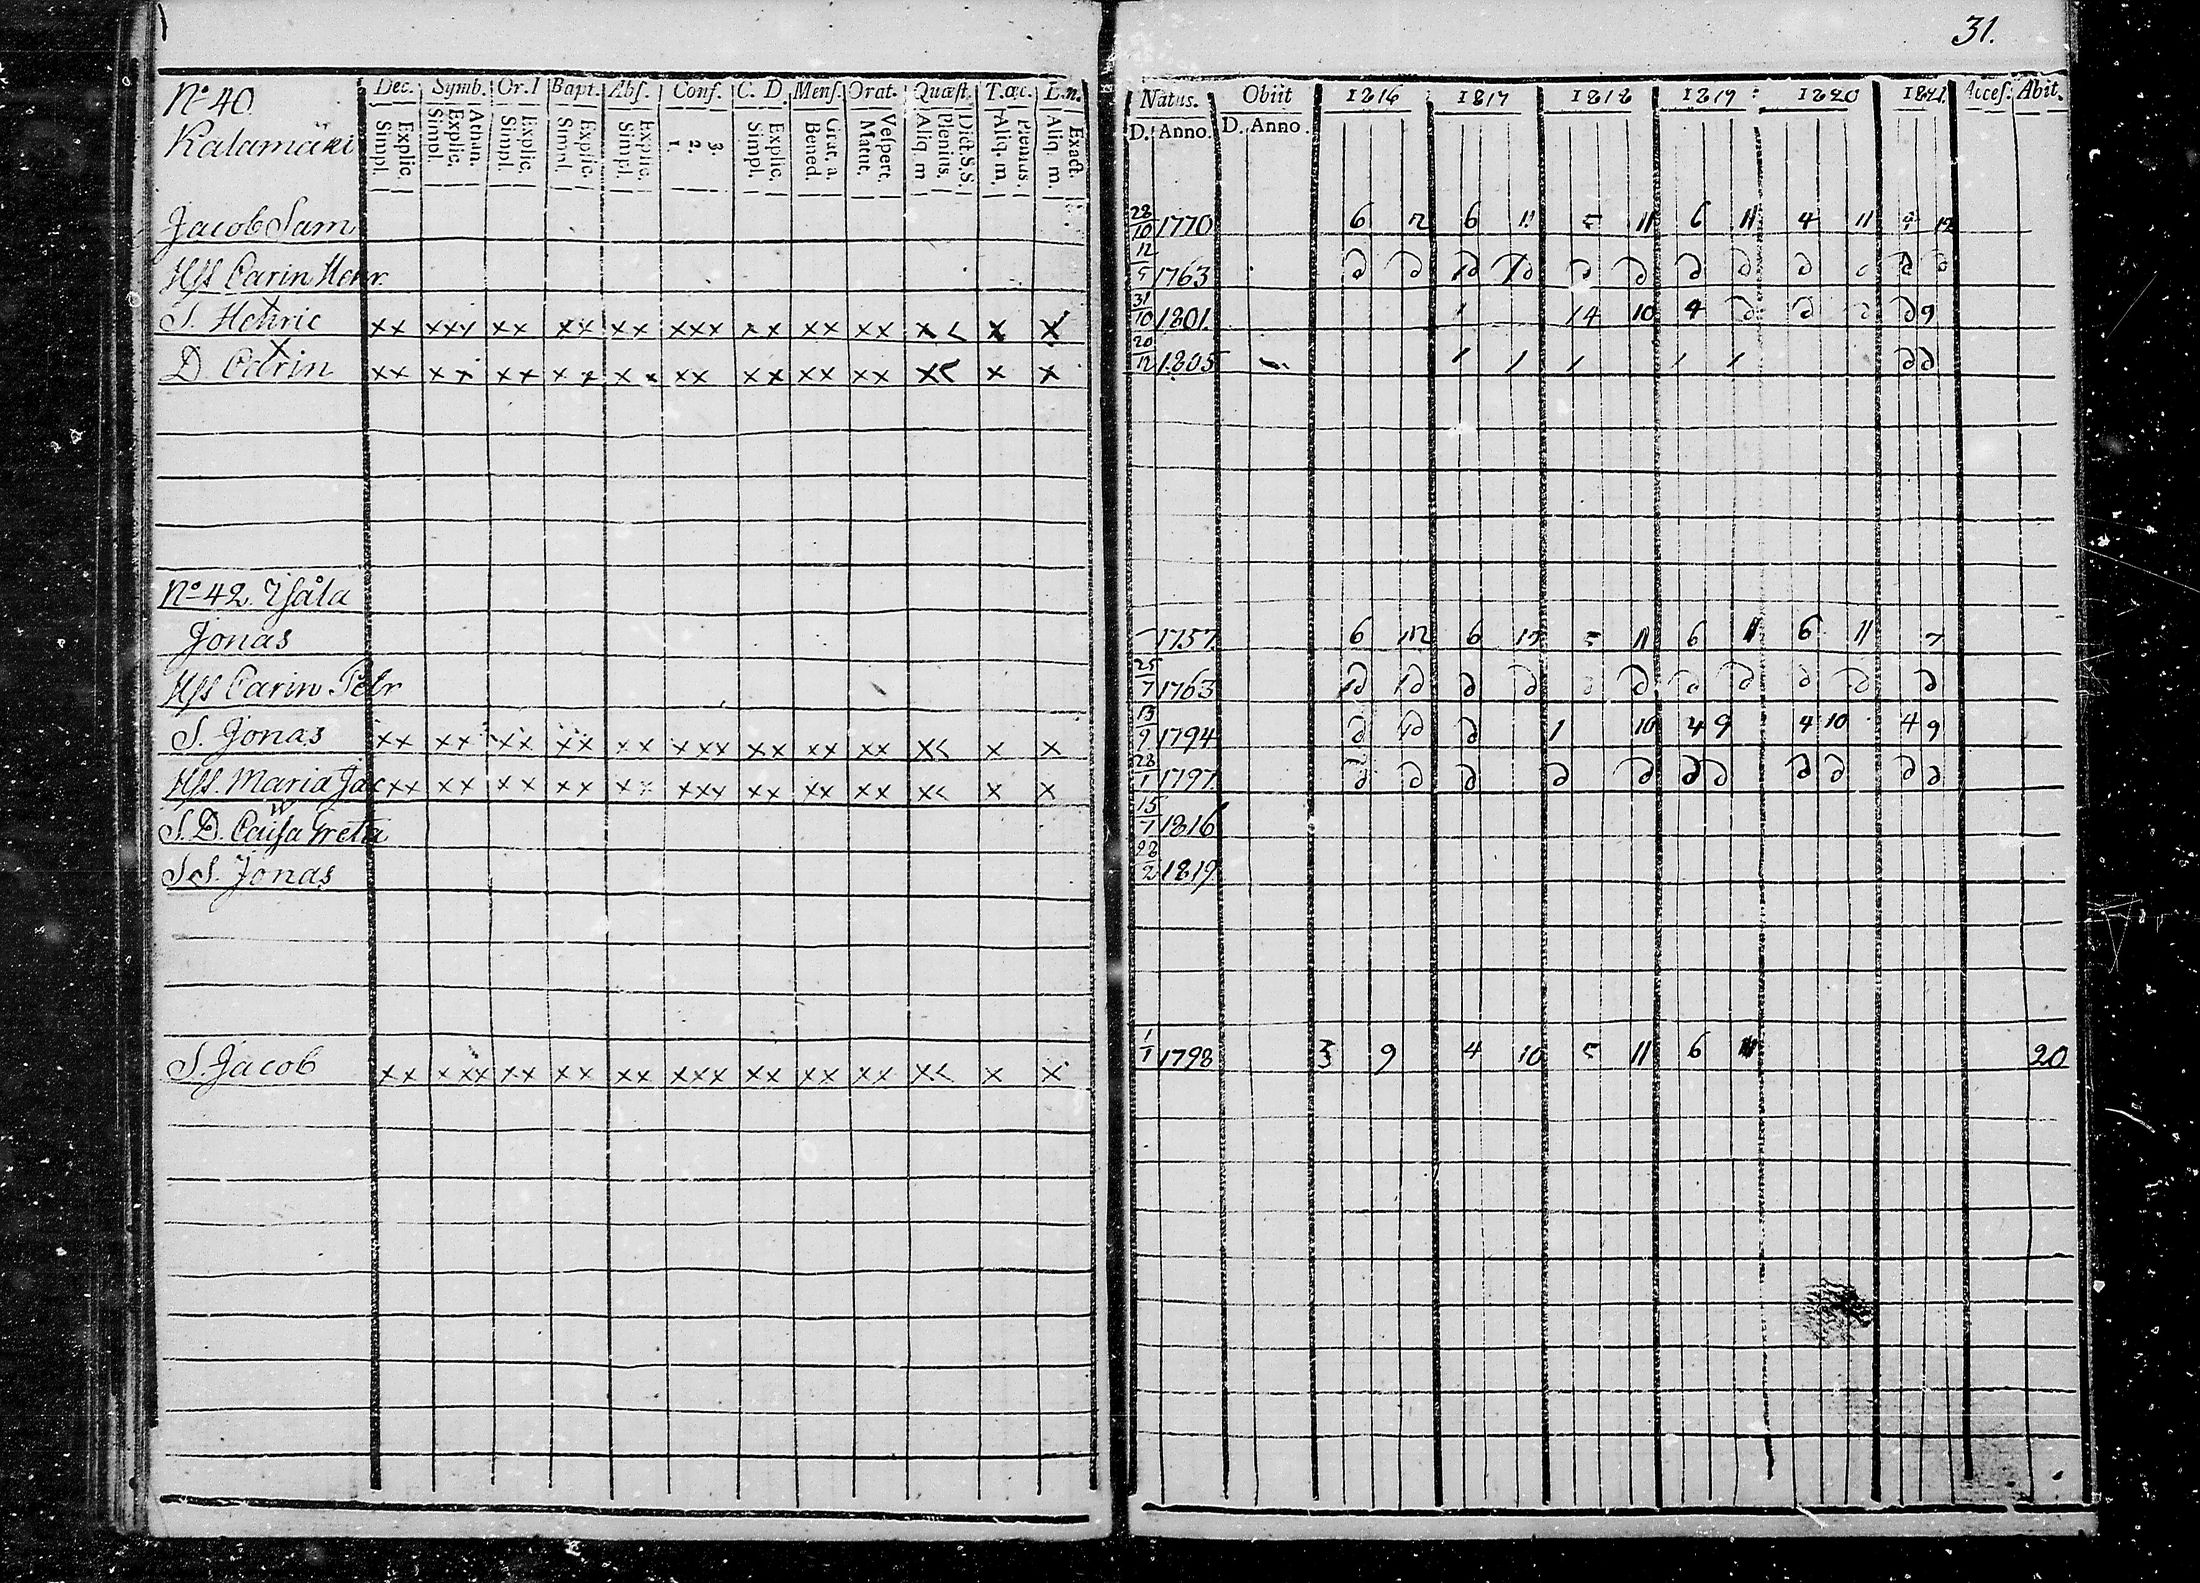 31.
No 40
Kalamäki
Dec. Symb. Or. I Bapt. Abs. Conf. C. D. Mens. Orat. Quæst. T. œc. L. n.
Explic. Simpl. Athan. Explic. Simpl. Explic. Simpl. Explic. Simpl. Explic. Simpl. 3. 2. 1 Explic. Simpl. Grat. a. Bened. Vespert. Matut. Dict. S. S. Plenius. Aliq. m Plenius. Aliq. m. Exact. Aliq. m.
Natus. Obiit 1816 1817 1818 1819 1820 1821 Acces. Abit.
D. Anno. D. Anno.
Jacob Sam 28/10 1770 6 12 6 11 5 11 6 11 4 11 12
Hss Carin Henr. 12/5 1763
S. Henric xx xxx xx xx xx xxx xx xx xx x< x x 31/10 1801 1 14 10 4 9
D. Catrin xx xx xx xx xx xx xx xx xx x< x x 20/12 1805 1 1 1 1 1
No 42
Jonas 1757 6 12 6 5 11 6 11 6 11 7
Hss Carin Petr 25/7 1763
S. Jonas xx xx xx xx xx xxx xx xx xx x< x x 13/9 1794 1 10 4 9 4 10 4 9
Hss. Maria Jac xx xx xx xx xx xxx xx xx xx x< x x 28/1 1797
S. D. Caisa Greta 15/7 1816
S. S. Jonas 28/2 1819
S. Jacob xx xxx xx xx xx xxx xx xx xx x< x x 1/1 1798 3 9 4 10 5 11 6 11 20